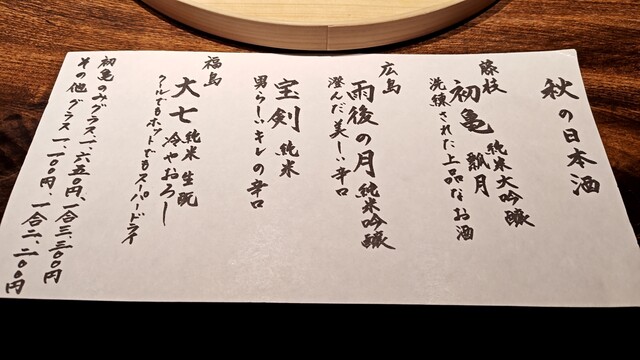 秋の日本酒
藤枝
初亀 純米大吟醸 瓢月
洗練された上品なお酒
広島
雨後の月 純米吟醸
澄んだ美しい辛口
宝剣 純米
男らしいキレの辛口
福島
大七 純米生酛 冷やおろし
クールでもホットでもスーパードライ
初亀のみグラス一、六五〇円、一合三、三〇〇円
その他 グラス一、一〇〇円、一合二、二〇〇円